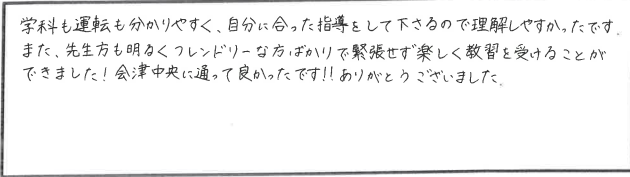 学科も運転も分かりやすく、自分に合った指導をして下さるので理解しやすかったです。
また、先生方も明るくフレンドリーな方ばかりで緊張せず楽しく教習を受けることが
できました！会津中央に通って良かったです!!ありがとうございました。